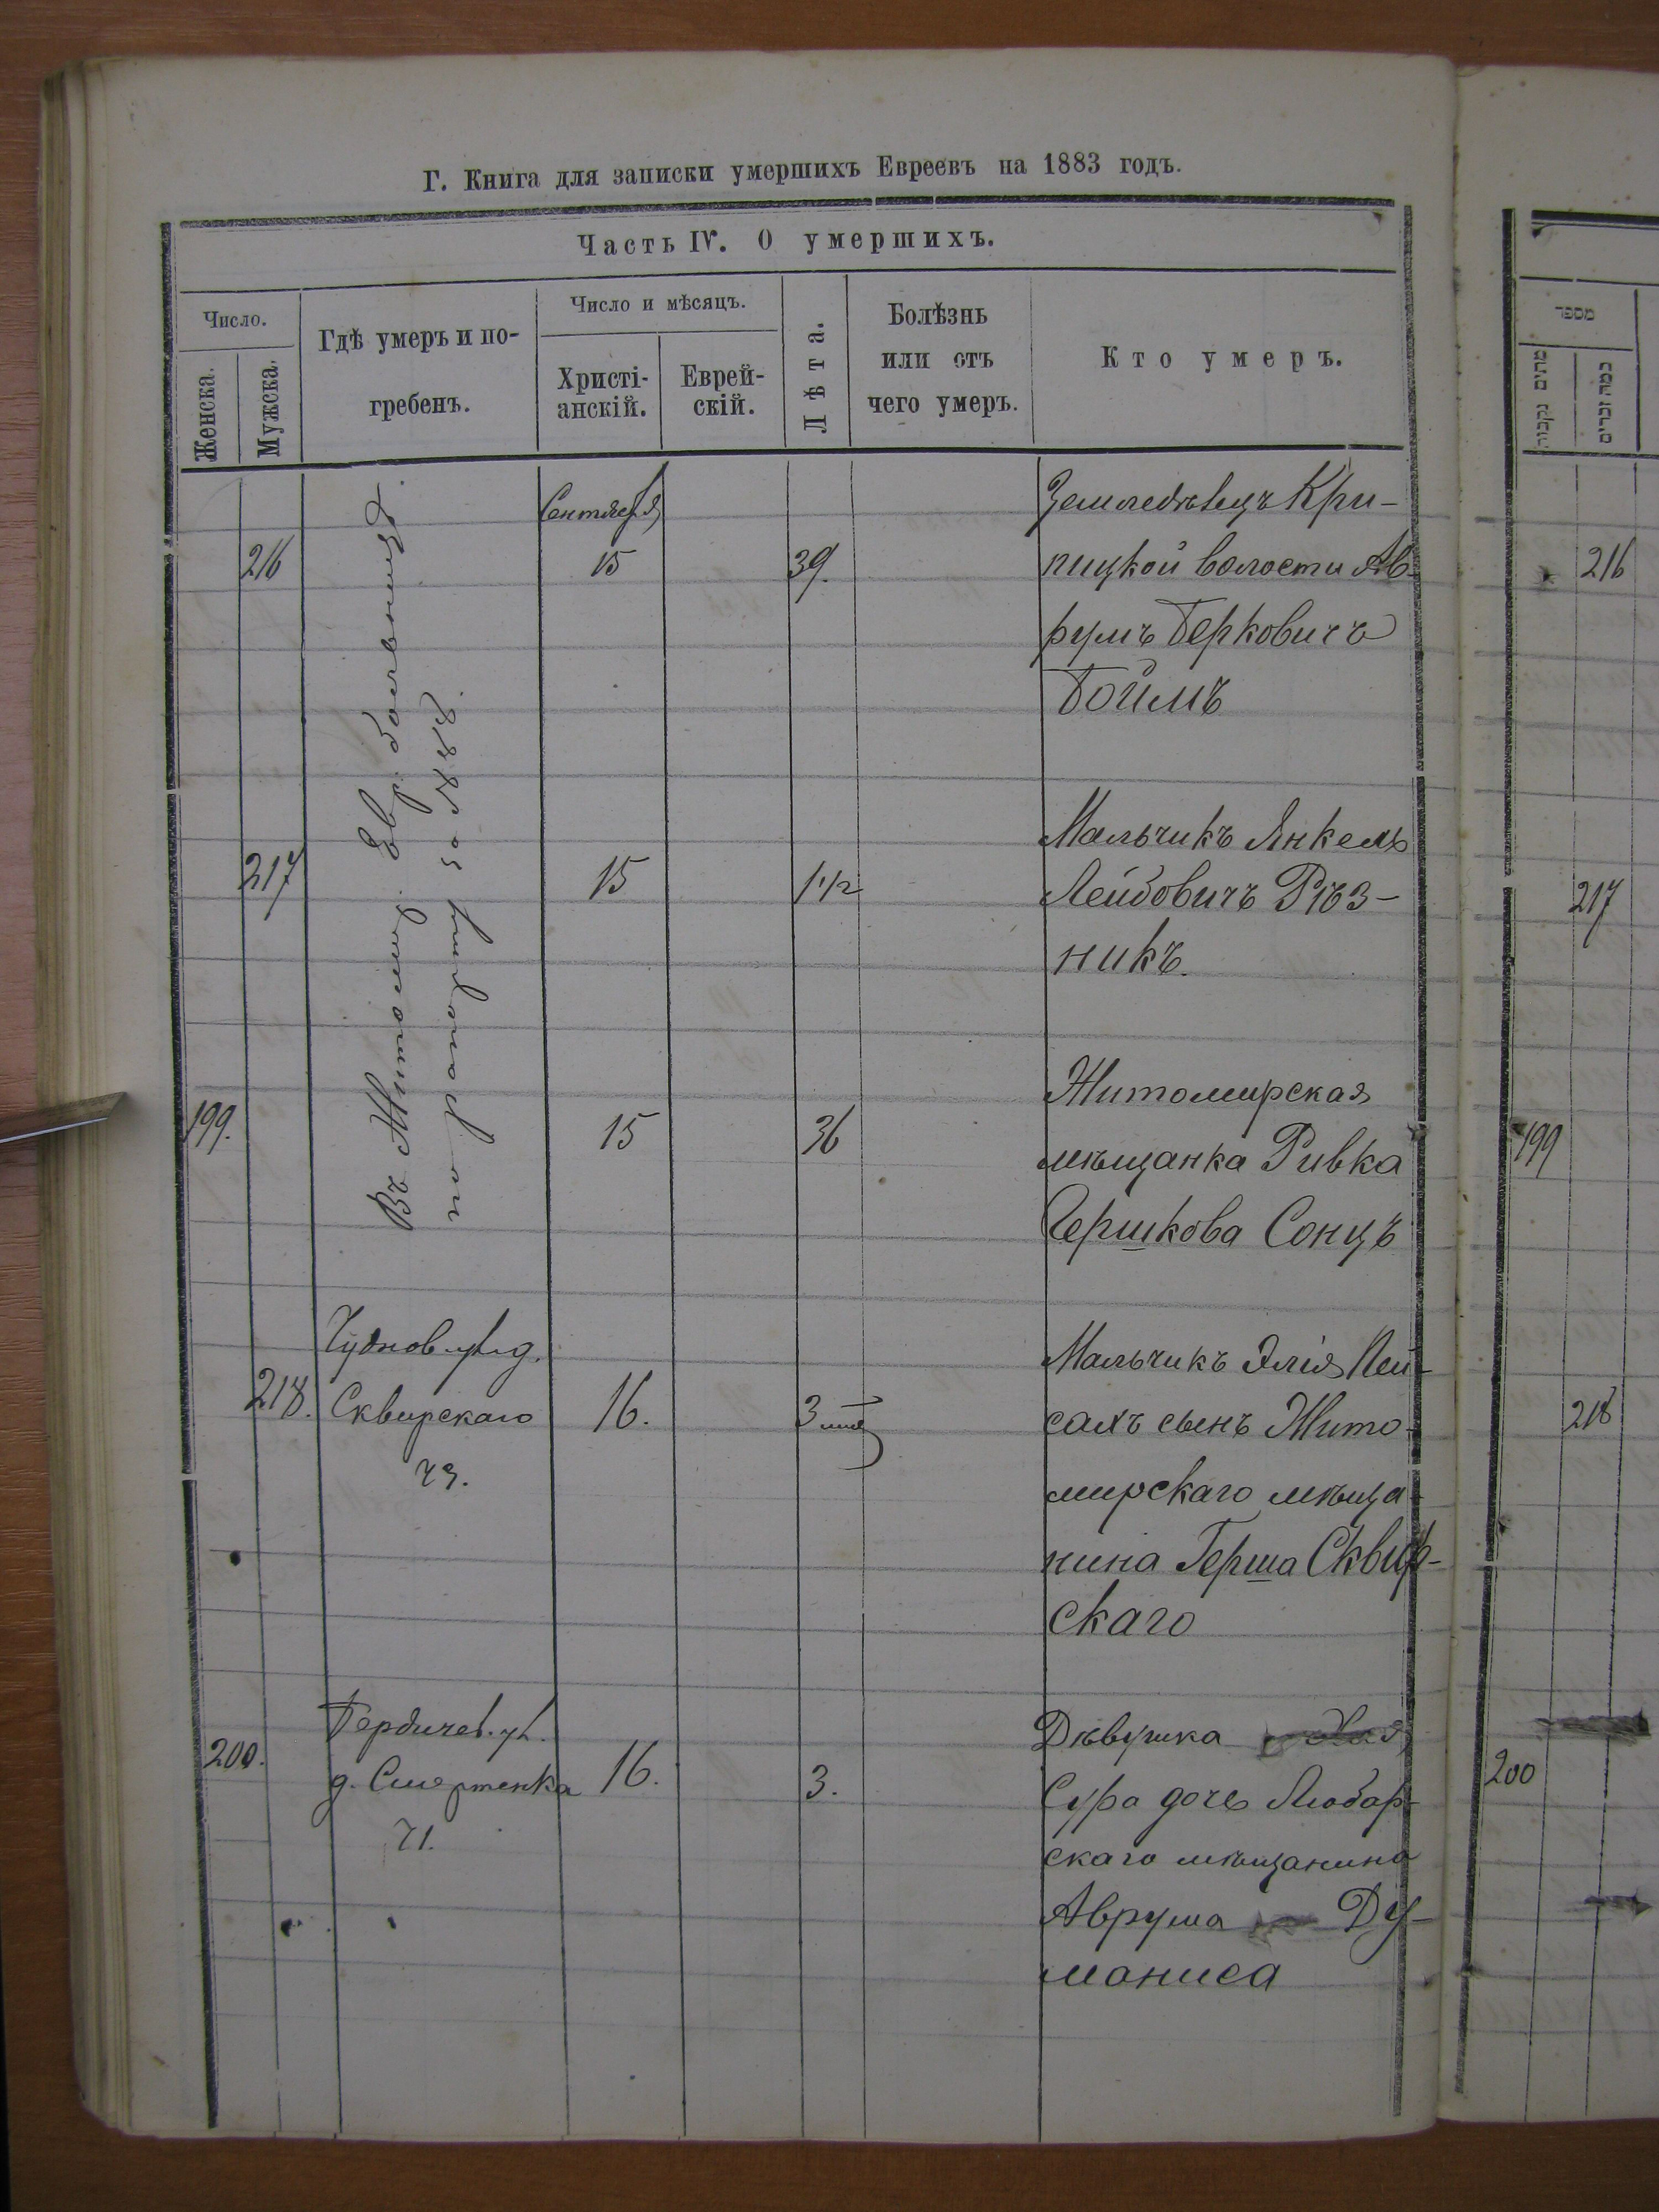 Г. Книга для записки умершихъ Евреевъ на 1883 годъ.
Часть IV. О умершихъ.
Число.
Женска.
Мужска.
Гдѣ умеръ и по-
гребенъ.
Число и мѣсяцъ.
Христі-
анскій.
Еврей-
скій.
Лѣта.
Болѣзнь
или отъ
чего умеръ.
Кто умеръ.
מספר
Въ Житомир. Евр. больницѣ
по рапорту за № 888.
Сентября
216
15
39.
Земледѣлецъ Кри-
пицкой волости Ав-
румъ Берковичъ
Боймъ
217
15
1 1/2
Мальчикъ Янкель
Лейбовичъ Рѣз-
никъ.
199.
15
36
Житомирская
мѣщанка Ривка
Гершкова Сонцъ
Чуднов. ул. д.
Сквирскаго
218.
16.
3
Мальчикъ Элія Пей-
сахъ сынъ Жито-
мирскаго мѣща-
нина Герша Сквир-
скаго
Бердичев. ул.
д.
200.
16.
3.
Дѣвушка
Сура дочь Любар-
скаго мѣщанина
Аврума Ду-
маниса
216
217
199
218
200